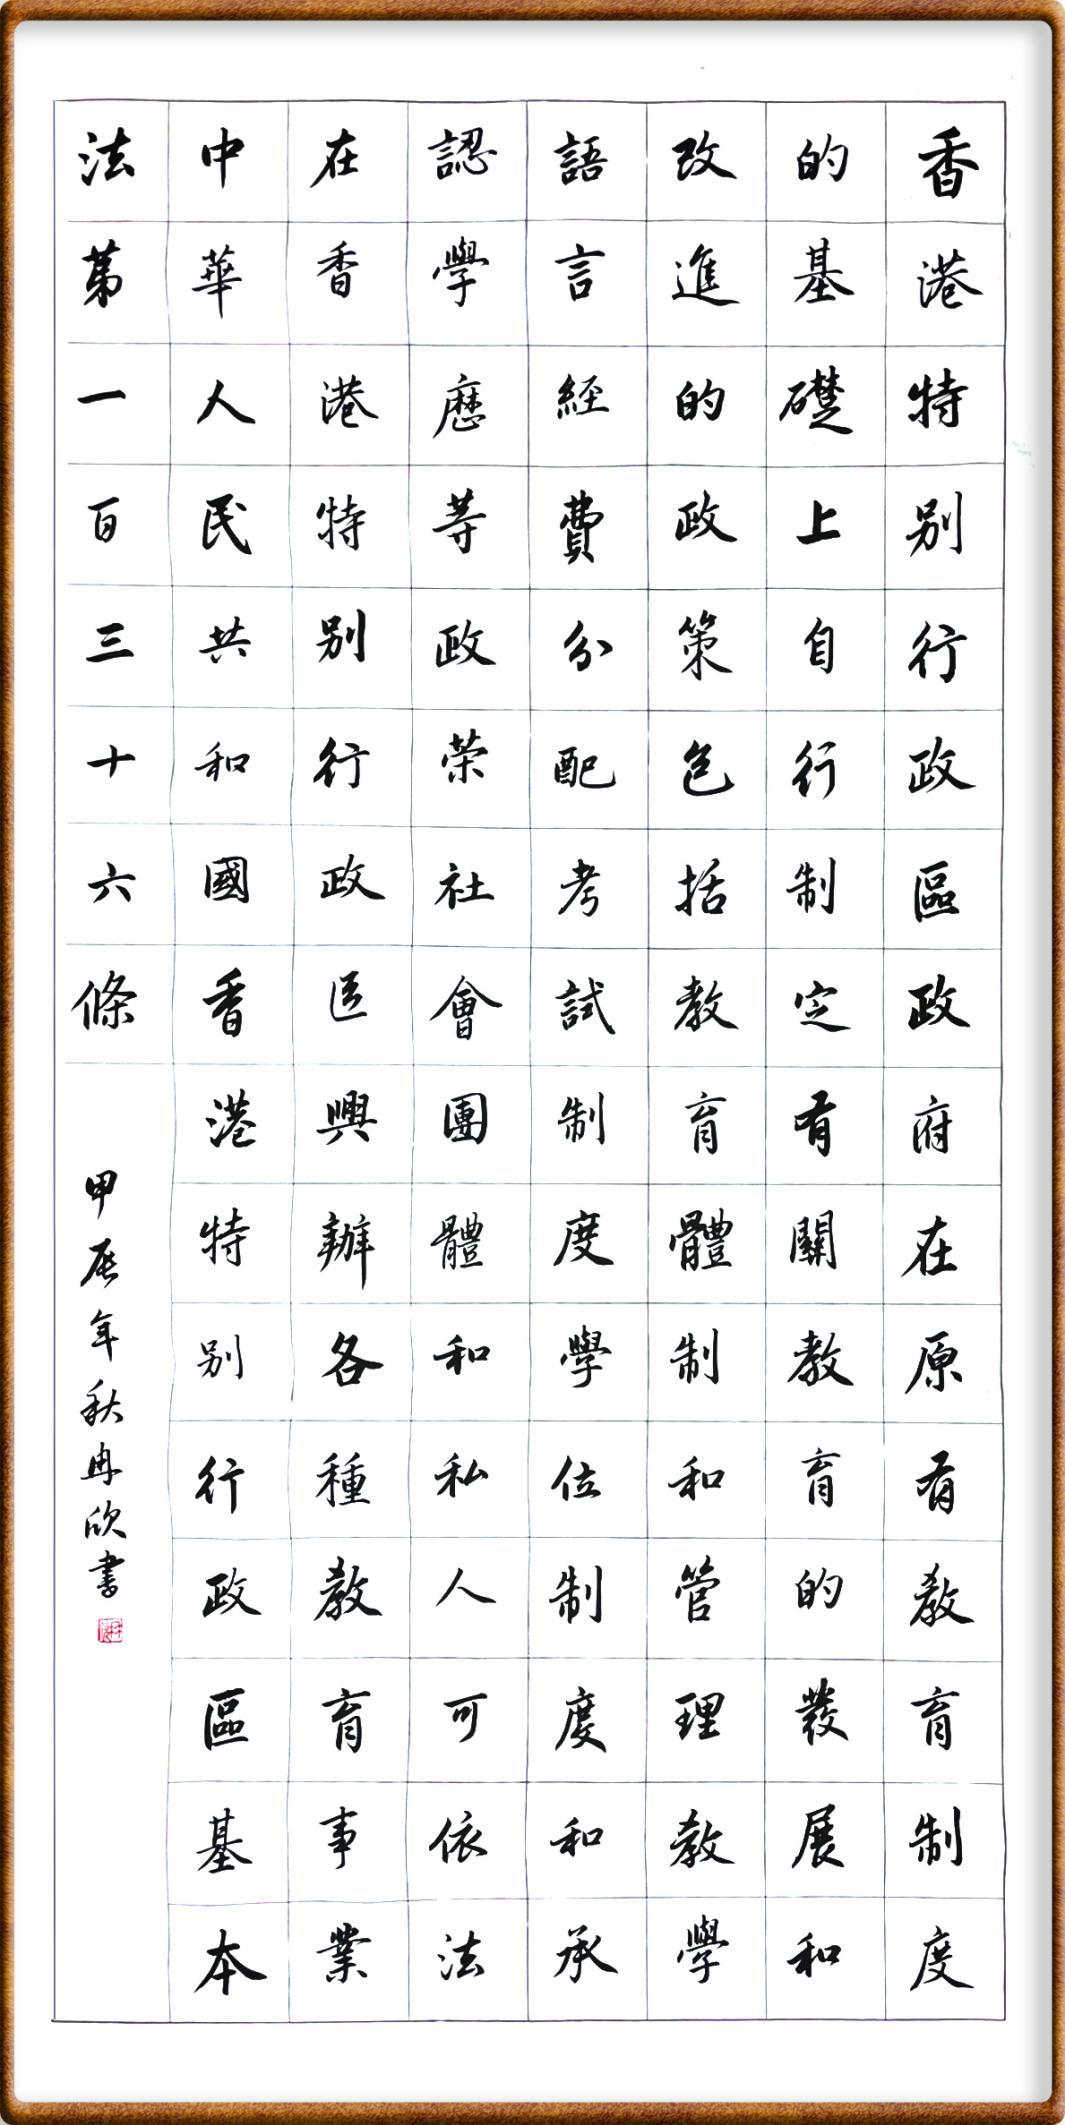 香港特别行政區政府在原有教育制度
的基礎上自行制定有關教育的發展和
改進的政策包括教育體制和管理教學
語言經費分配考試制度學位制度和承
認學歷等政荣社會團體和私人可依法
在香港特别行政區興辦各種教育事業
中華人民共和國香港特别行政區基本
法第一百三十六條
甲辰年秋冉欣書